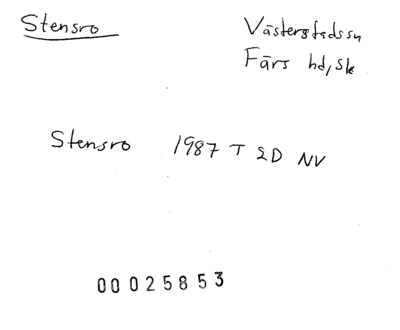 Stensro
Västerstadssn
Färs hd, Sk
Stensro 1987 T 2D NV
00025853